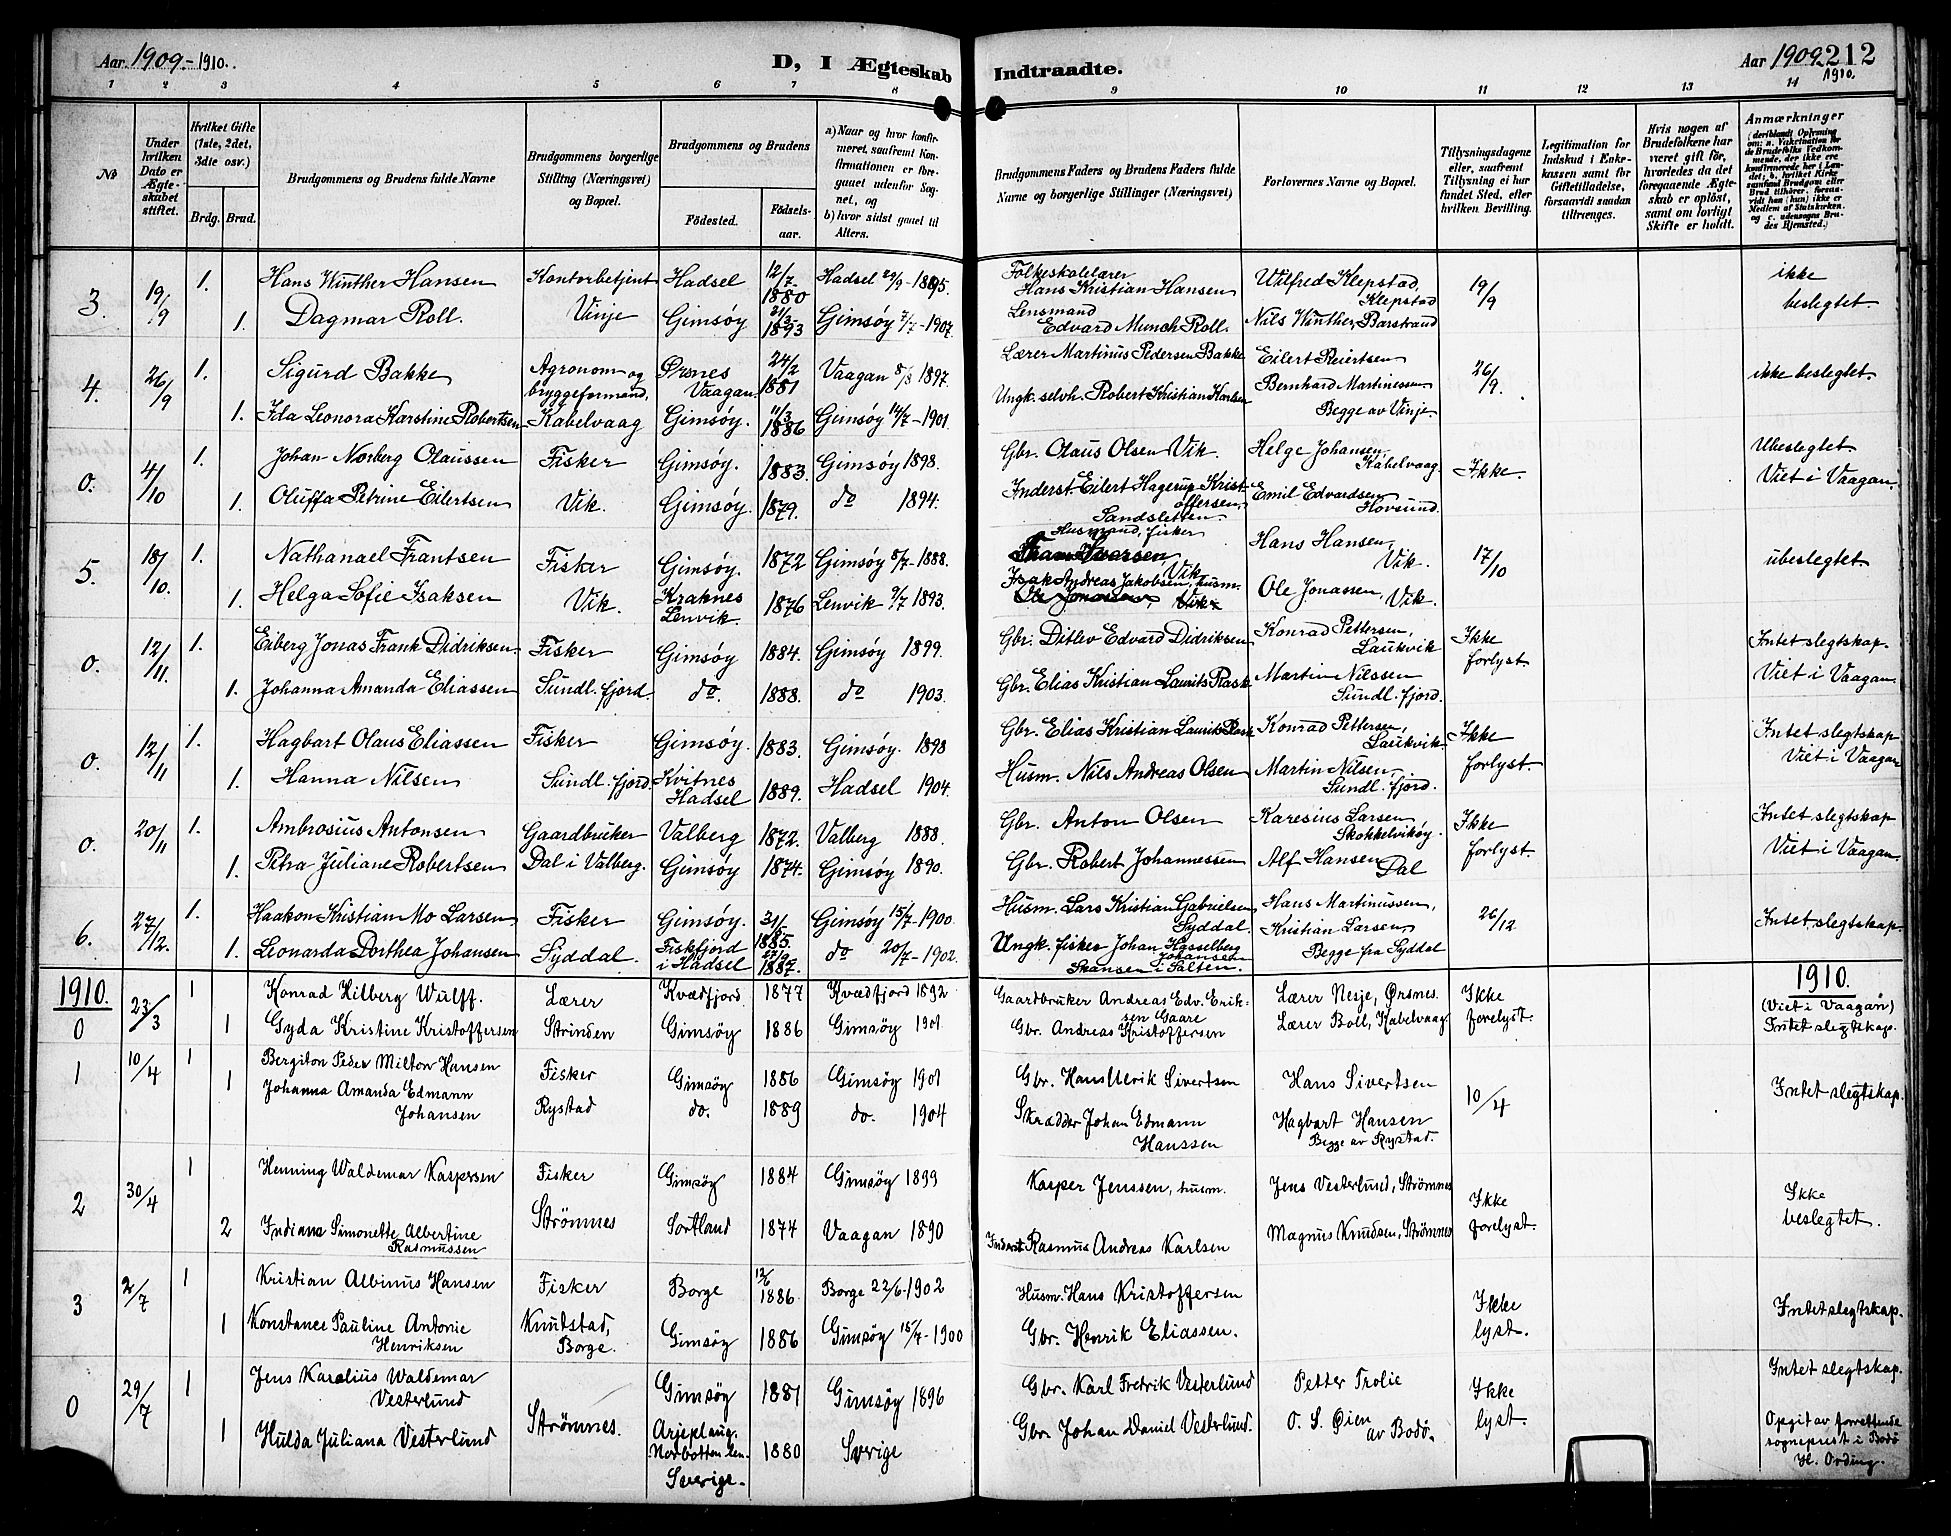 Aar 1909.-1910.
D, I Ægteskab Indtraadte.
Aar 1909 212
1910.
1 2 3 4 5 6 7 8 9 10 11 12 13 14
No
Under hvilken Dato er Ægteskabet stiftet.
Hvilket Gifte (1ste, 2det, 3die osv.)
Brdg. Brud.
Brudgommens og Brudens fulde Navne
Brudgommens borgerlige Stilling (Næringsvei) og Bopæl.
Brudgommens og Brudens
Fødested. Fødselsaar.
a) Naar og hvor konfirmeret, saafremt Konfirmationen er foregaaet udenfor Sognet, og b) hvor sidst gaaet til Alters.
Brudgommens Faders og Brudens Faders fulde Navne og borgerlige Stillinger (Næringsvei)
Forlovernes Navne og Bopæl.
Tillysningsdagene eller, saafremt Tillysning ei har fundet Sted, efter hvilken Bevilling.
Legitimation for Indskud i Enkekassen samt for Giftetilladelse, forsaavidt saadan tiltrænges.
Hvis nogen af Brudefolkene har været gift før, hvorledes da det foregaaende Ægteskab er opløst, samt om lovligt Skifte er holdt.
Anmærkninger
3. 19/9 1. Hans Winther Hansen Kontorbetjent Hadsel 12/7 1880 Hadsel 29/9-1895. Folkeskolelærer Hans Kristian Hansen Wilfred Klepstad, Klepstad 19/9 ikke beslegtet
1. Dagmar Roll. Vinje Gimsöy 21/3 1893 Gimsöy 7/7-1907. Lensmand Edvard Munch Roll. Nils Winther, Barstrand
4. 26/9 1. Sigurd Bakke Agronom og bryggeformand, Ørsnes Vaagan 24/2 1881 Vaagan 8/8 1897. Lærer Martinus Pedersen Bakke Eilert Reiertsen 26/9. ikke beslegtet.
1. Ida Leonora Karstine Robertsen Kabelvaag Gimsöy. 11/3 1886 Gimsöy 14/7-1901. Ungk. selvh. Robert Kristian Karlsen Bernhard Martinussen Begge av Vinje.
0. 4/10 1. Johan Norberg Olaussen Fisker Gimsöy. 1883. Gimsöy 1898. Gbr. Olaus Olsen Vik. Helge Johansen, Kabelvaag Ikke. Ubeslegtet
1. Oluffa Petrine Eilertsen Vik. Gimsöy. 1879. do 1894. Inderst. Eilert Hagerup Kristoffersen, Sandsletten. Emil Edvardsen Hovsund. Viet i Vaagan.
5. 18/10. 1. Nathanael Frantsen Fisker Gimsöy. 1872 Gimsöy 8/7-1888. Husmand, fisker Vik Hans Hansen, Vik. 17/10 ubeslegtet
1. Helga Sofie Isaksen Vik. Kraknes Lenvik. 1876 Lenvik 9/7 1893. Isak Andreas Jakobsen, husm. Ole Jonassen, Vik.
0. 12/11. 1. Eiberg Jonas Frank Didriksen Fisker Gimsöy 1884. Gimsöy 1899. Gbr. Ditlev Edvard Didriksen Konrad Pettersen, Laukvik Ikke forlyst Intet slegtskap.
1. Johanna Amanda Eliassen Sundl. fjord. do. 1888. do 1903. Gbr. Elias Kristian Laurits Rask Martin Nilssen Sundl. fjord. Viet i Vaagan.
0. 12/11 1. Hagbart Olaus Eliassen Fisker Gimsöy. 1883. Gimsöy. 1898 Gbr. Elias Kristian Laurits Rask Konrad Pettersen, Laukvik Ikke forlyst. Intet slegtskap
1. Hanna Nilsen Sundl. fjord Kvitnes Hadsel 1889. Hadsel 1904. Husm. Nils Andreas Olsen Martin Nilsen, Sundl. fjord. Viet i Vaagan
0. 20/11 1. Ambrosius Antonsen Gaardbruker Valberg 1872. Valberg 1888. Gbr. Anton Olsen Karesius Larsen Skokkelvikøy. Ikke forlyst. Intet slegtskap
1. Petra Juliane Robertsen Dal i Valberg. Gimsöy 1874. Gimsöy 1890. Gbr. Robert Johannessen Alf Hansen Dal Viet i Vaagan.
6. 27/12. 1. Haakon Kristian Mo Larsen Fisker Gimsöy. 31/5 1885. Gimsöy 15/7-1900. Husm. Lars Kristian Gabrielsen Syddal. Hans Martinussen, 26/12 Intet slegtskap
1. Leonarda Dorthea Johansen Syddal. Fiskfjord i Hadsel 1887. do 20/7-1902. Ungk. fisker Johan Hasselberg Johansen Skansen i Salten. Kristian Larsen, Begge fra Syddal
1910. 1910.
0 23/3 1 Konrad Hilberg Wulff. Lærer Kvædfjord 1877 Kvædfjord 1892 Gaardbruker Andreas Edv. Eriksen Gaare Lærer Nesje, Ørsnes. Ikke forelyst. (Viet i Vaagan)
1 Gyda Kristine Kristoffersen Strinden Gimsöy 1886 Gimsöy 1901 Gbr. Andreas Kristoffersen Lærer Boll, Kabelvaag Intet slegtskap.
1 10/4 1 Bergiton Peder Milton Hansen Fisker Gimsöy 1886 Gimsöy 1901 Gbr. Hans Ulrik Sivertsen Hans Sivertsen 10/4 Intet slegtskap.
1 Johanna Amanda Edmann Johansen Rystad do. 1889 do. 1904 Skrædder Johan Edmann Hanssen Hagbart Hansen Begge av Rystad.
2 30/4 1 Henning Waldemar Kaspersen Fisker Gimsöy 1884 Gimsöy 1899 Kasper Jenssen, husm. Jens Vesterlund, Strömnes Ikke forelyst. Ikke beslegtet.
2 Indiana Simonette Albertine Rasmussen Strömnes Sortland 1874 Vaagan 1890 Inderst Rasmus Andreas Karlsen Magnus Knudsen, Strömnes
3 2/7 1 Kristian Albinus Hansen Fisker Borge 12/6 1886 Borge 22/6-1902 Husm. Hans Kristoffersen Ikke lyst. Intet slegtskap.
1 Konstance Pauline Antonie Henriksen Knutstad, Borge. Gimsöy 1886 Gimsöy 15/7-1900 Gbr. Henrik Eliassen.
0 29/7 1 Jens Karelius Waldemar Vesterlund Strömnes. Gimsöy 1881 Gimsöy 1896 Gbr. Karl Fredrik Vesterlund Petter Trolie Ikke lyst. Intet slegtskap.
1 Hulda Juliana Vesterlund Arjeplaug. Norbotten len Sverige. 1880 Sverige Gbr. Johan Daniel Vesterlund. O. S. Øien av Bodø. Opgit av forrettende sogneprest i Bodø H. Ording.